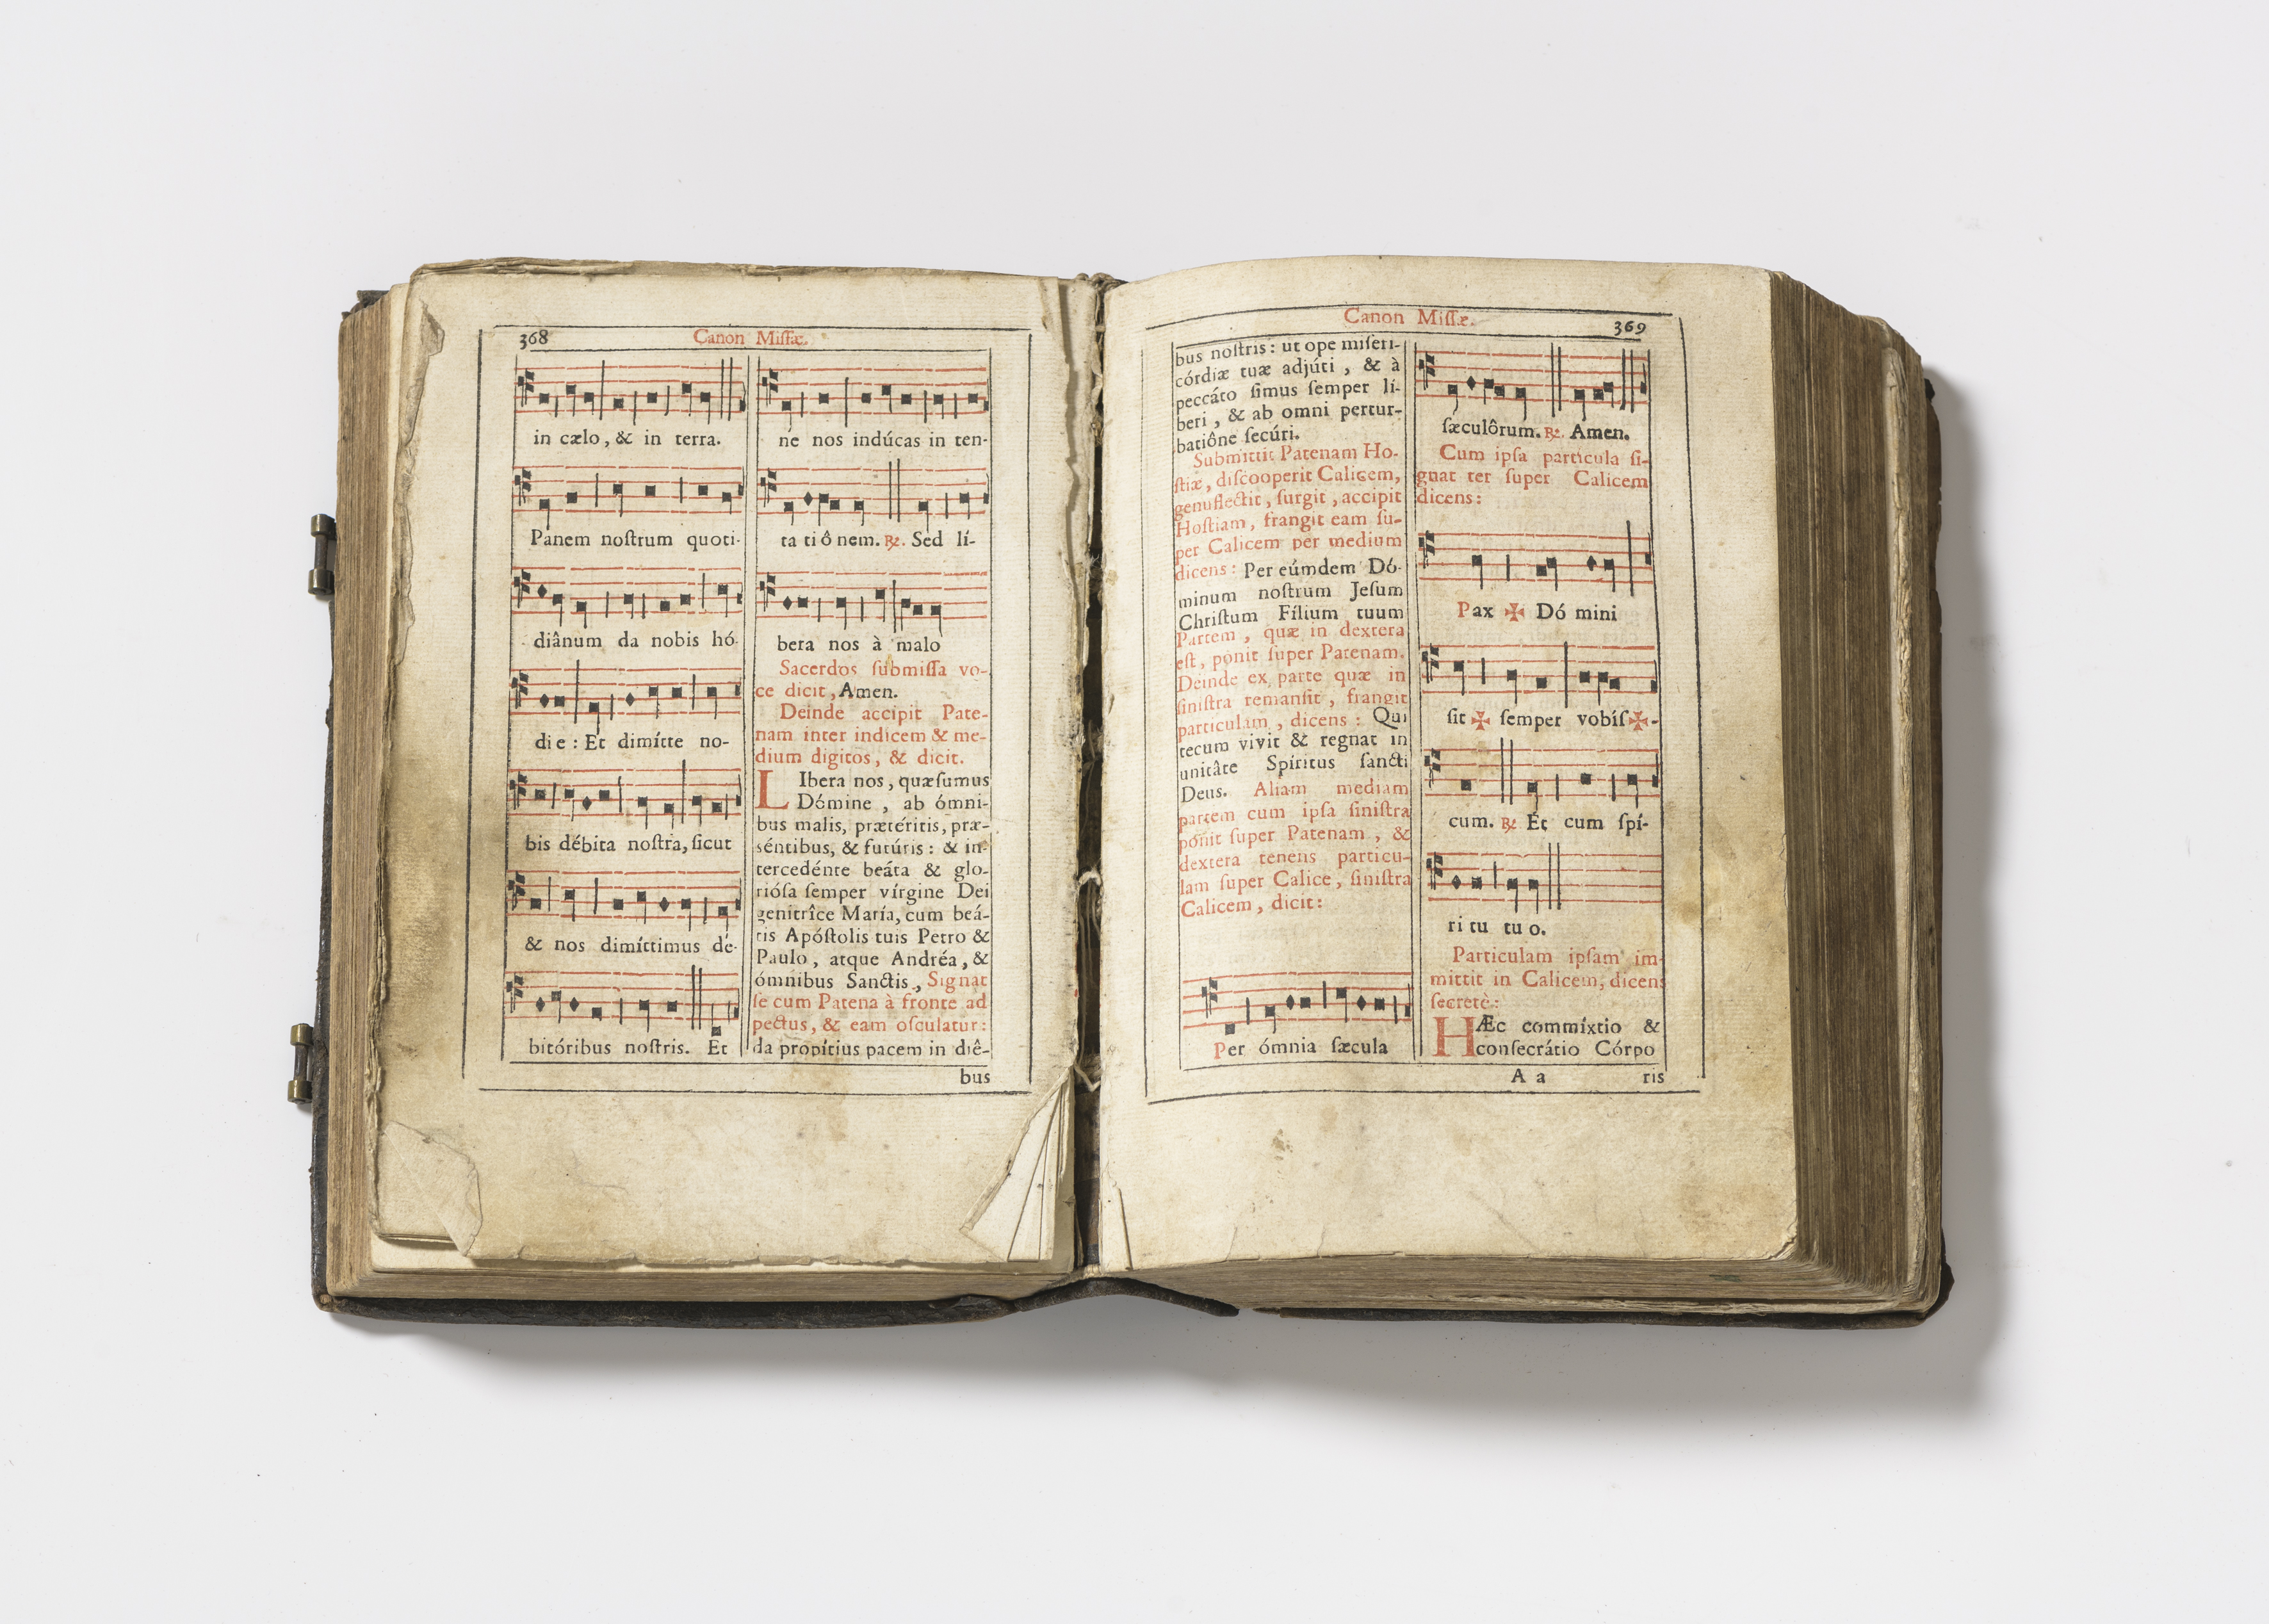 368
Canon Miſſæ.
in cælo, & in terra.
Panem noſtrum quoti-
diânum da nobis hó-
die: Et dimítte no-
bis débita noſtra, ſicut
& nos dimíttimus dé-
bitóribus noſtris. Et
ne nos indúcas in ten-
ta ti ô nem. ℞. Sed lí-
bera nos à malo
Sacerdos ſubmiſſa vo-
ce dicit, Amen.
Deinde accipit Pate-
nam inter indicem & me-
dium digitos, & dicit.
LIbera nos, quæſumus
Dómine, ab ómni-
bus malis, prætéritis, præ-
séntibus, & futúris: & in-
tercedénte beáta & glo-
riósa ſemper vírgine Dei
genitrîce María, cum beá-
tis Apóſtolis tuis Petro &
Paulo, atque Andréa, &
ómnibus Sanctis, Signat
ſe cum Patena à fronte ad
pectus, & eam oſculatur:
da propítius pacem in diê-
bus
Canon Miſſæ.
369
bus noſtris: ut ope miſeri-
córdiæ tuæ adjúti, & à
peccáto ſimus ſemper lí-
beri, & ab omni pertur-
batiône ſecúri.
Submittit Patenam Ho-
ſtiæ, diſcooperit Calicem,
genuflectit, ſurgit, accipit
Hoſtiam, frangit eam ſu-
per Calicem per medium
dicens: Per eúmdem Dó-
minum noſtrum Jeſum
Chriſtum Fílium tuum
Partem, quæ in dextera
eſt, ponit ſuper Patenam.
Deinde ex parte quæ in
ſiniſtra remanſit, frangit
particulam, dicens: Qui
tecum vivit & regnat in
unitâte Spiritus ſancti
Deus. Aliam mediam
partem cum ipſa ſiniſtra
ponit ſuper Patenam, &
dextera tenens particu-
lam ſuper Calice, ſiniſtra
Calicem, dicit:
Per ómnia ſæcula
ſæculôrum. ℞. Amen.
Cum ipſa particula ſi-
gnat ter ſuper Calicem
dicens:
Pax ✠ Dó mini
ſit ✠ ſemper vobíſ✠-
cum. ℞ Et cum ſpí-
ri tu tu o.
Particulam ipſam im-
mittit in Calicem, dicens
ſecretè:
HÆc commíxtio &
conſecrátio Córpo
A a
ris